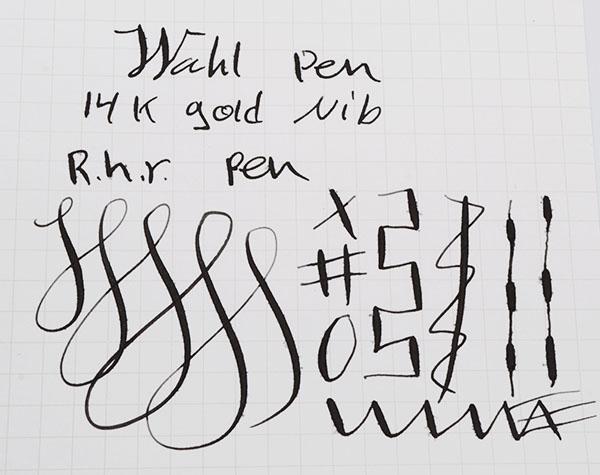 Wahl Pen
14K gold Nib
R.h.r. Pen
X
#
O